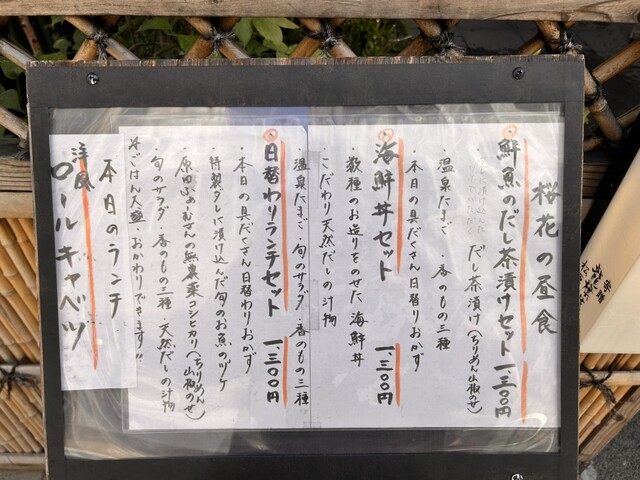 桜花の昼食
鮮魚のだし茶漬けセット 一、三〇〇円
だし茶漬け(ちりめん山椒のせ)
・温泉たまご ・香のもの三種
・本日の具だくさん日替りおかず
海鮮丼セット 一、三〇〇円
・数種のお造りをのせた海鮮丼
・こだわり天然だしの汁物
・温泉たまご・旬のサラダ・香のもの三種
日替わりランチセット 一、三〇〇円
・本日の具だくさん日替わりおかず
・特製タレに漬け込んだ旬のお魚のヅケ
・原田ふぁーむさんの無農薬コシヒカリ(ちりめん山椒のせ)
・旬のサラダ・香のもの三種・天然だしの汁物
※ごはん大盛・おかわりできます!!
本日のランチ
洋風
ロールキャベツ